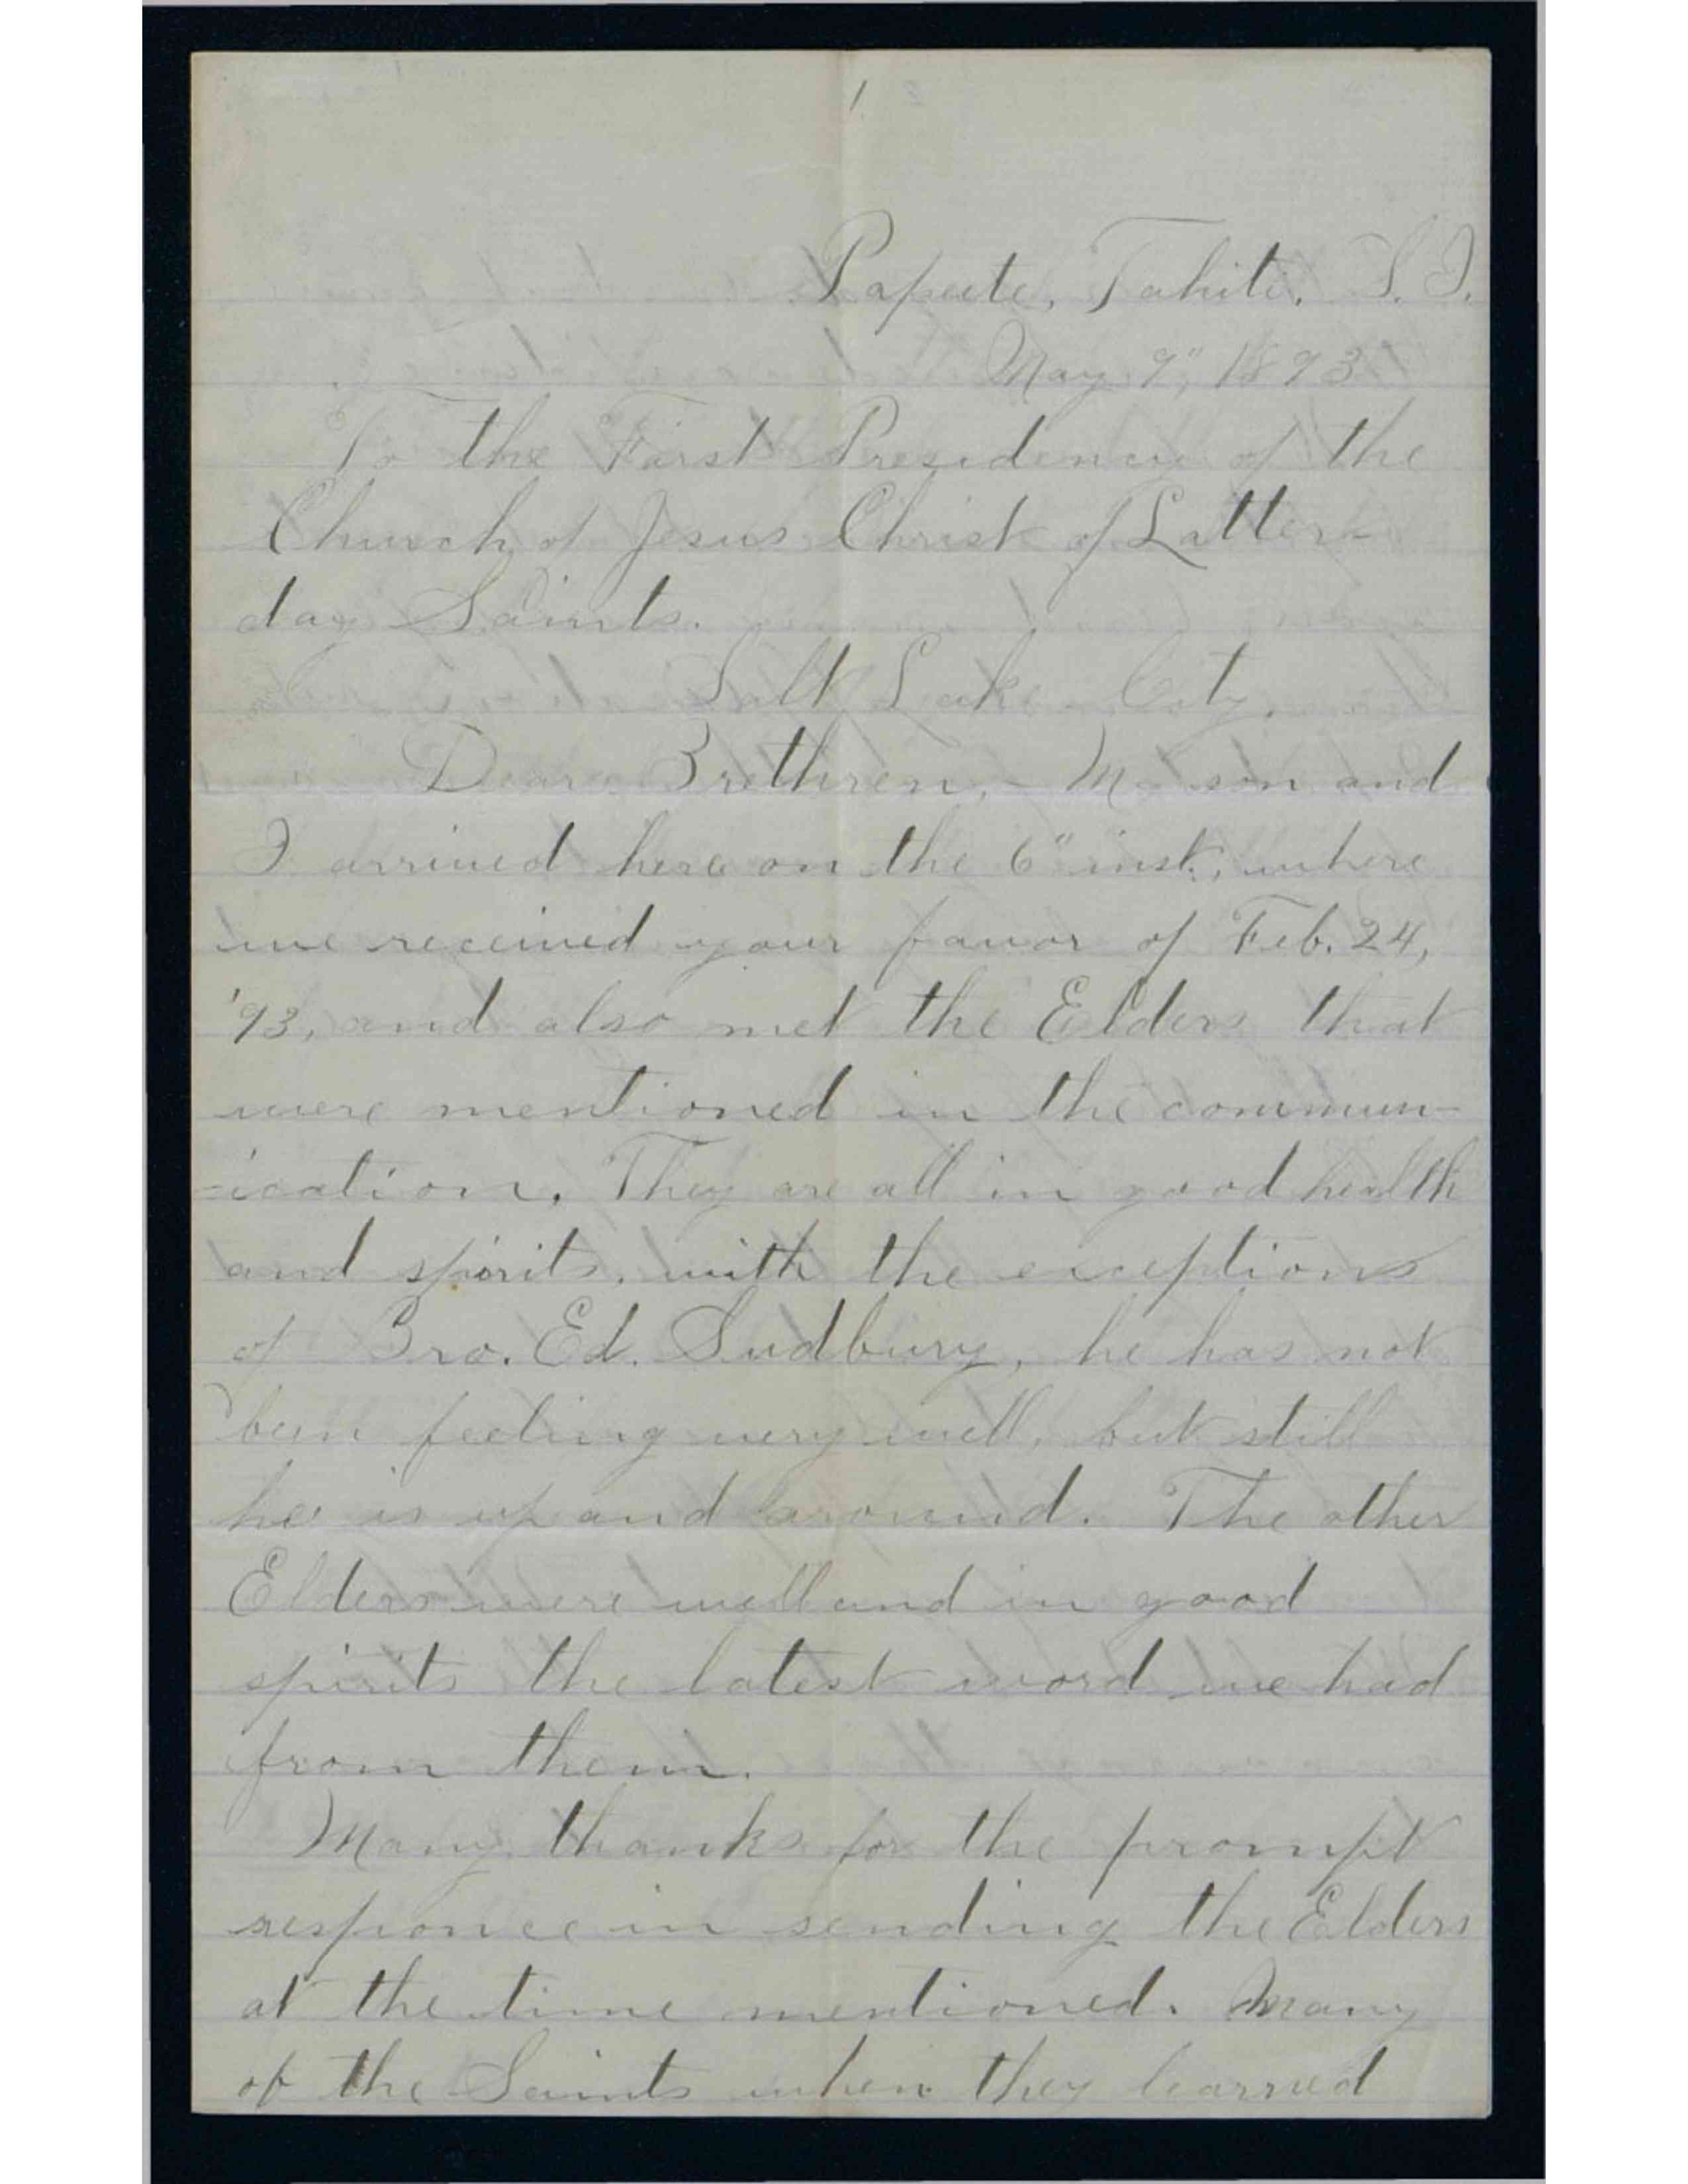 1
Papeete, Tahiti. S.I.
May 9", 1893
To the First Presidency of the
Church of Jesus Christ of Latter-
day Saints.
Salt Lake City.
Dear Brethren, - My son and
I arrived here on the 6" inst., where
we received your favor of Feb. 24,
'93, and also met the Elders that
were mentioned in the commun-
-ication. They are all in good health
and spirits, with the exceptions
of Bro. Ed. Sudbury, he has not
been feeling very well, but still
he is up and around. The other
Elders were well and in good
spirits the latest word we had
from them.
Many thanks for the prompt
responce in sending the Elders
at the time mentioned. Many
of the Saints when they learned